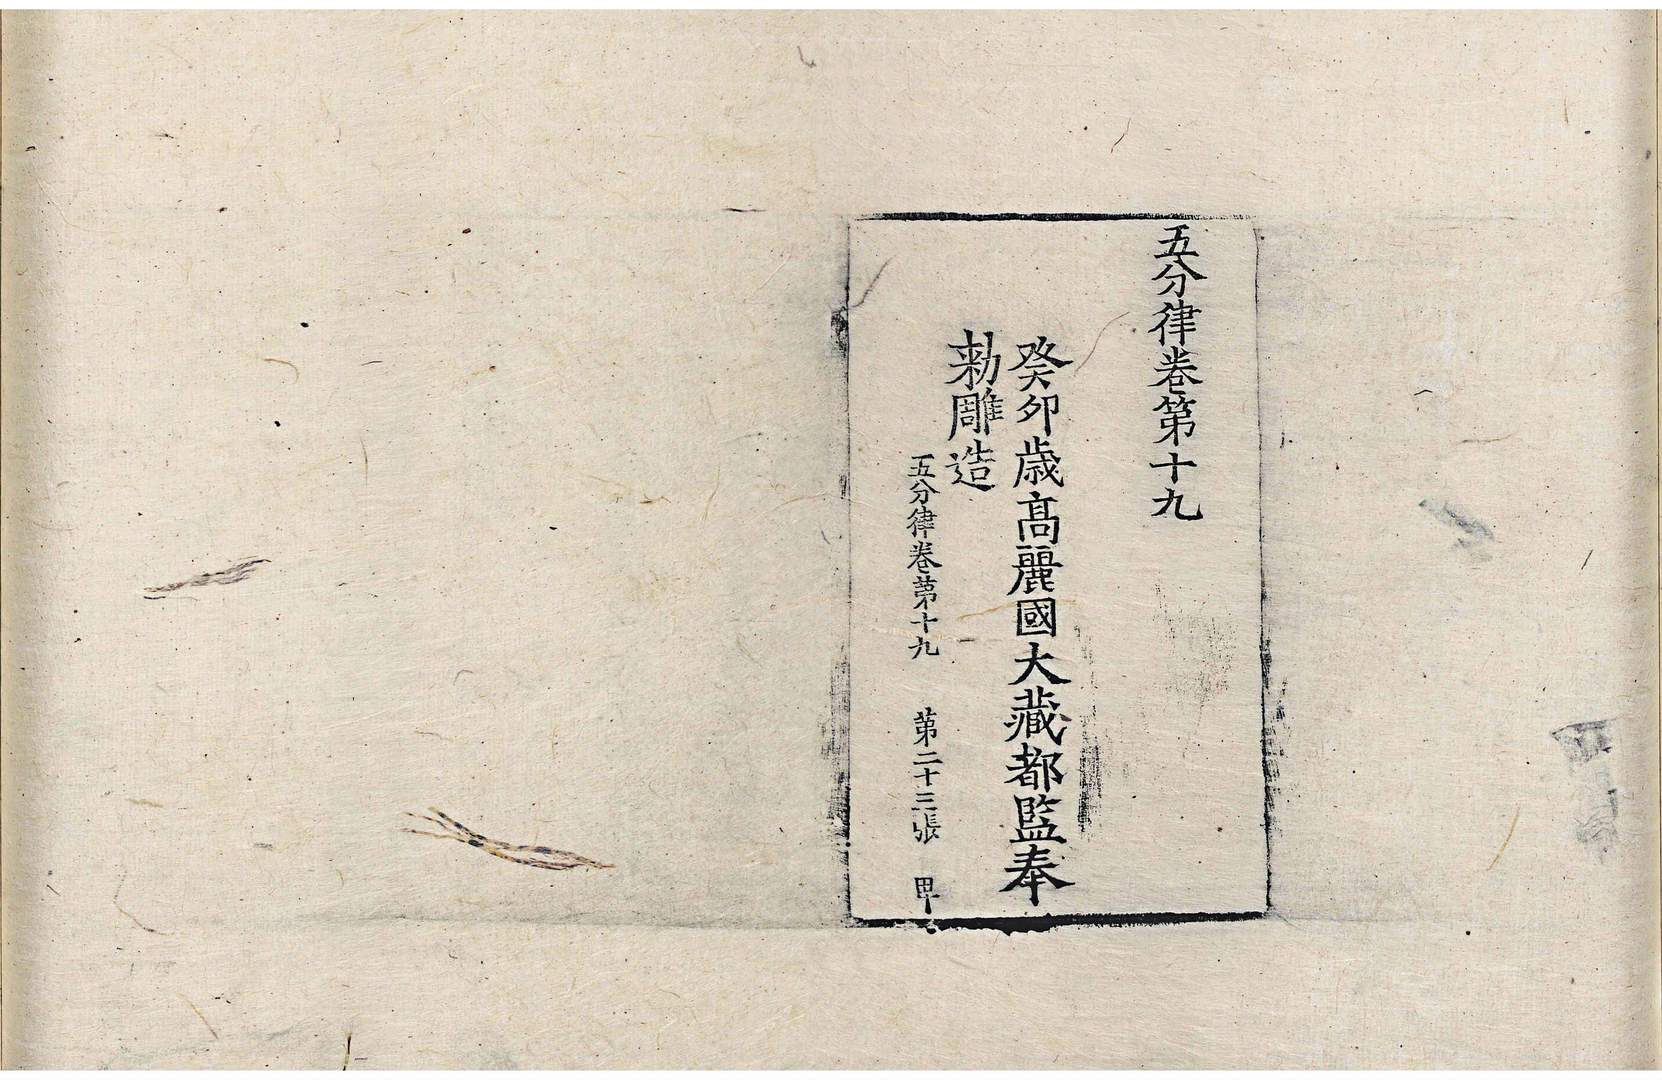 五分律卷第十九
癸卯歳髙麗國大藏都監奉
勅雕造
五分律卷苐十九　苐二十三張　甲